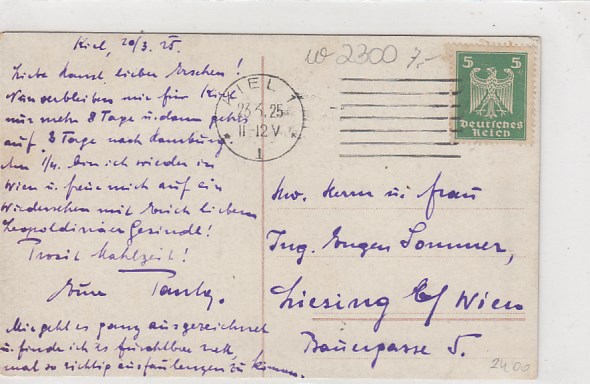 Kiel, 20/3. 25.
Liebe Hansl, lieber Urschen!
Nun verbleiben mir für Kiel
nur mehr 8 Tage u. dann gehts
auf 8 Tage nach Hamburg
Am 1/4. bin ich wieder in
Wien u. freue mich auf ein
Wiedersehen mit Euch liebem
Leopoldinäer Gesindl!
Prosit Mahlzeit!
Eure
Mir geht es ganz ausgezeichnet
u. finde ich es furchtbar nett,
mal so richtig ausfaulenzen zu können.
W 2300 7,-
KIEL 1
23.3.25
11-12 V
1
5 5
Deutsches
Reich
Sw. Herrn u. Frau
Ing. Eugen Sommer,
Liesing b/ Wien
Bauergasse 5.
2400